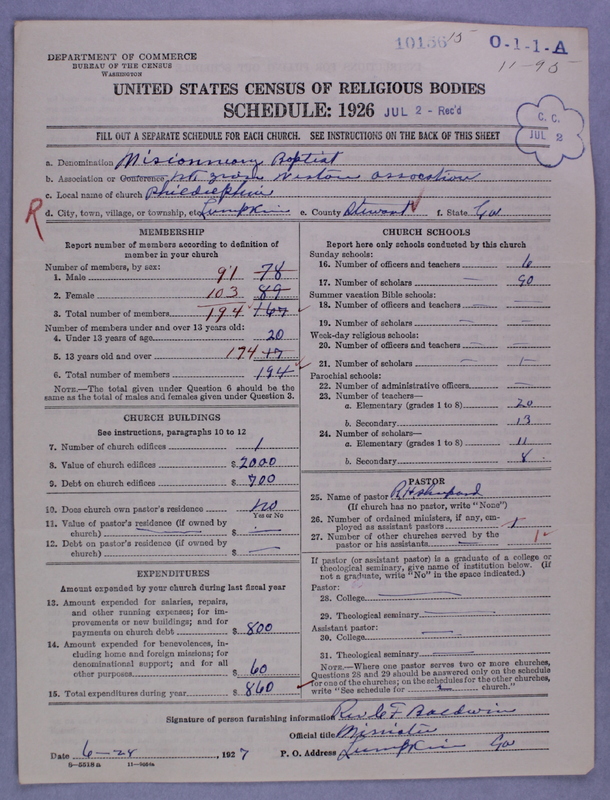 10156 15
O-1-1-A
11-95
DEPARTMENT OF COMMERCE
BUREAU OF THE CENSUS
WASHINGTON
UNITED STATES CENSUS OF RELIGIOUS BODIES
SCHEDULE: 1926 JUL 2 - Rec'd
C. C.
JUL 2
FILL OUT A SEPARATE SCHEDULE FOR EACH CHURCH. SEE INSTRUCTIONS ON THE BACK OF THIS SHEET
a. Denomination Baptist
b. Association or Conference
c. Local name of church
R d. City, town, village, or township, etc. Lumpkin e. County Stewart f. State Ga
MEMBERSHIP
Report number of members according to definition of
member in your church
Number of members, by sex:
1. Male 91 78
2. Female 103 89
3. Total number of members 194 167
Number of members under and over 13 years old:
4. Under 13 years of age 20
5. 13 years old and over 174 17
6. Total number of members 194
NOTE.—The total given under Question 6 should be the
same as the total of males and females given under Question 3.
CHURCH BUILDINGS
See instructions, paragraphs 10 to 12
7. Number of church edifices 1
8. Value of church edifices $ 2000
9. Debt on church edifices $ 700
10. Does church own pastor's residence no
Yes or No
11. Value of pastor's residence (if owned by
church) $ —
12. Debt on pastor's residence (if owned by
church) $ —
EXPENDITURES
Amount expended by your church during last fiscal year
13. Amount expended for salaries, repairs,
and other running expenses; for im-
provements or new buildings; and for
payments on church debt $ 800
14. Amount expended for benevolences, in-
cluding home and foreign missions; for
denominational support; and for all
other purposes $ 60
15. Total expenditures during year $ 860
CHURCH SCHOOLS
Report here only schools conducted by this church
Sunday schools:
16. Number of officers and teachers 6
17. Number of scholars 90
Summer vacation Bible schools:
18. Number of officers and teachers —
19. Number of scholars —
Week-day religious schools:
20. Number of officers and teachers —
21. Number of scholars —
Parochial schools:
22. Number of administrative officers —
23. Number of teachers—
a. Elementary (grades 1 to 8) 20
b. Secondary 13
24. Number of scholars—
a. Elementary (grades 1 to 8) 11
b. Secondary 8
PASTOR
25. Name of pastor
(If church has no pastor, write "None")
26. Number of ordained ministers, if any, em-
ployed as assistant pastors 1
27. Number of other churches served by the
pastor or his assistants — 1
If pastor (or assistant pastor) is a graduate of a college or
theological seminary, give name of institution below. (If
not a graduate, write "No" in the space indicated.)
Pastor:
28. College —
29. Theological seminary —
Assistant pastor:
30. College —
31. Theological seminary —
NOTE.—Where one pastor serves two or more churches,
Questions 28 and 29 should be answered only on the schedule
for one of the churches; on the schedules for the other churches,
write "See schedule for church."
Signature of person furnishing information Rev. C F Baldwin
Official title Minister
Date 6-24, 1927 P. O. Address Lumpkin Ga
8-5518a 11-9064